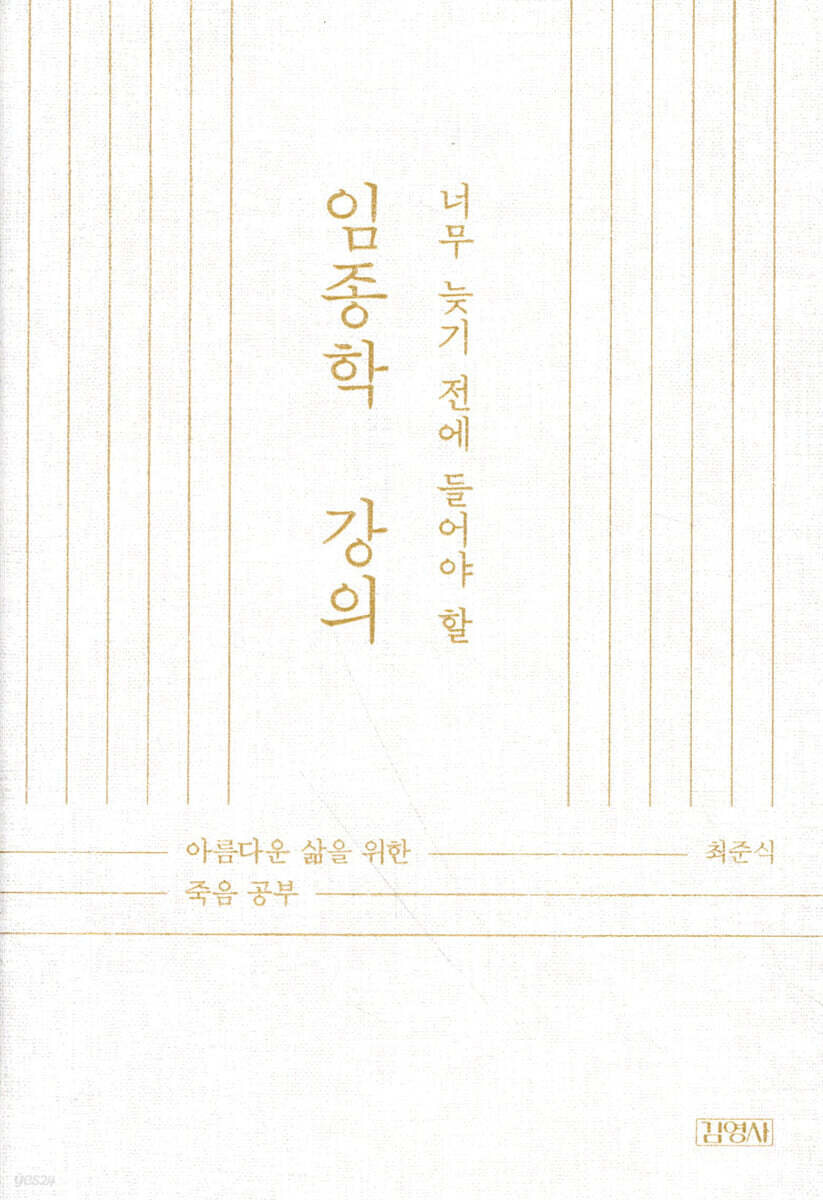 너무 늦기 전에 들어야 할
임종학 강의
아름다운 삶을 위한
죽음 공부
최준식
김영사
yes24